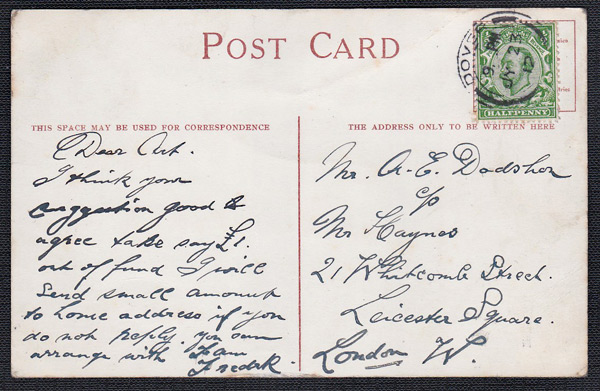 POST CARD
DOVER
HALFPENNY
THIS SPACE MAY BE USED FOR CORRESPONDENCE
Dear Art.
I think your
suggestion good &
agree take say £1.
out of fund I will
send small amount
to home address if you
do not reply. you can
arrange with Fam
Fredk.
THE ADDRESS ONLY TO BE WRITTEN HERE
Mr. A. E. Dadshon
c/o
Mr Haynes
21 Whitcomb Street.
Leicester Square.
London W.